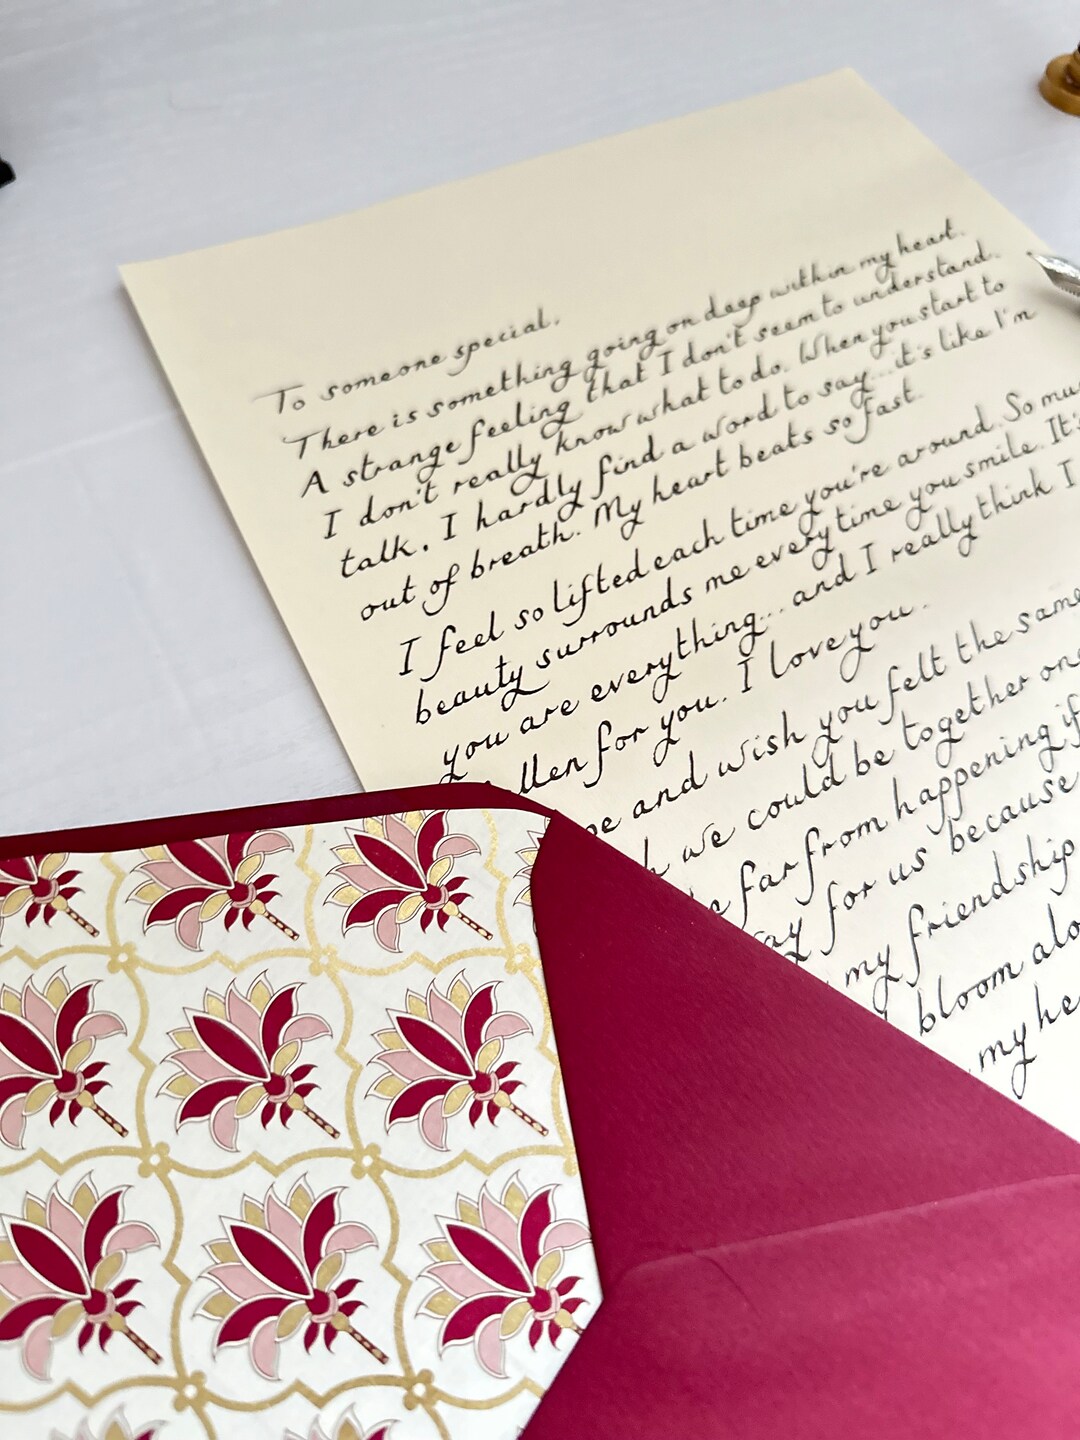 To someone special,
There is something going on deep within my heart.
A strange feeling that I don't seem to understand.
I don't really know what to do. When you start to
talk, I hardly find a word to say...it's like I'm
out of breath. My heart beats so fast.
I feel so lifted each time you're around. So
beauty surrounds me every time you smile. It's
you are everything... and I really think I
for you. I love you.
and wish you felt the same
we could be together
far from happening if
for us because
my friendship
bloom
my